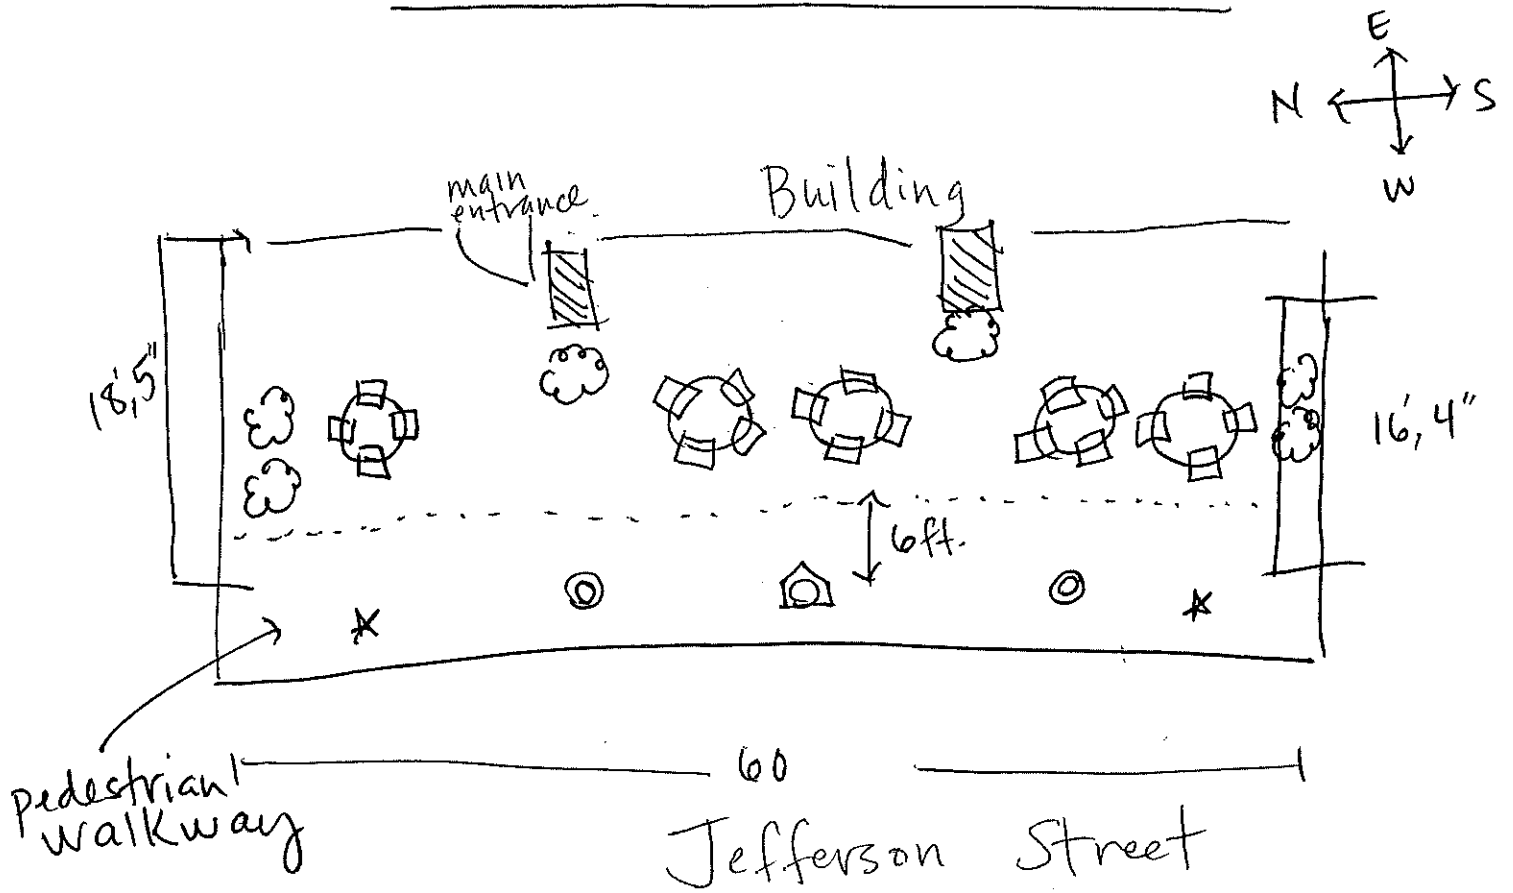 E
N S
W
main
entrance.
Building
18',5"
16', 4"
6ft.
60
pedestrian
walkway
Jefferson Street